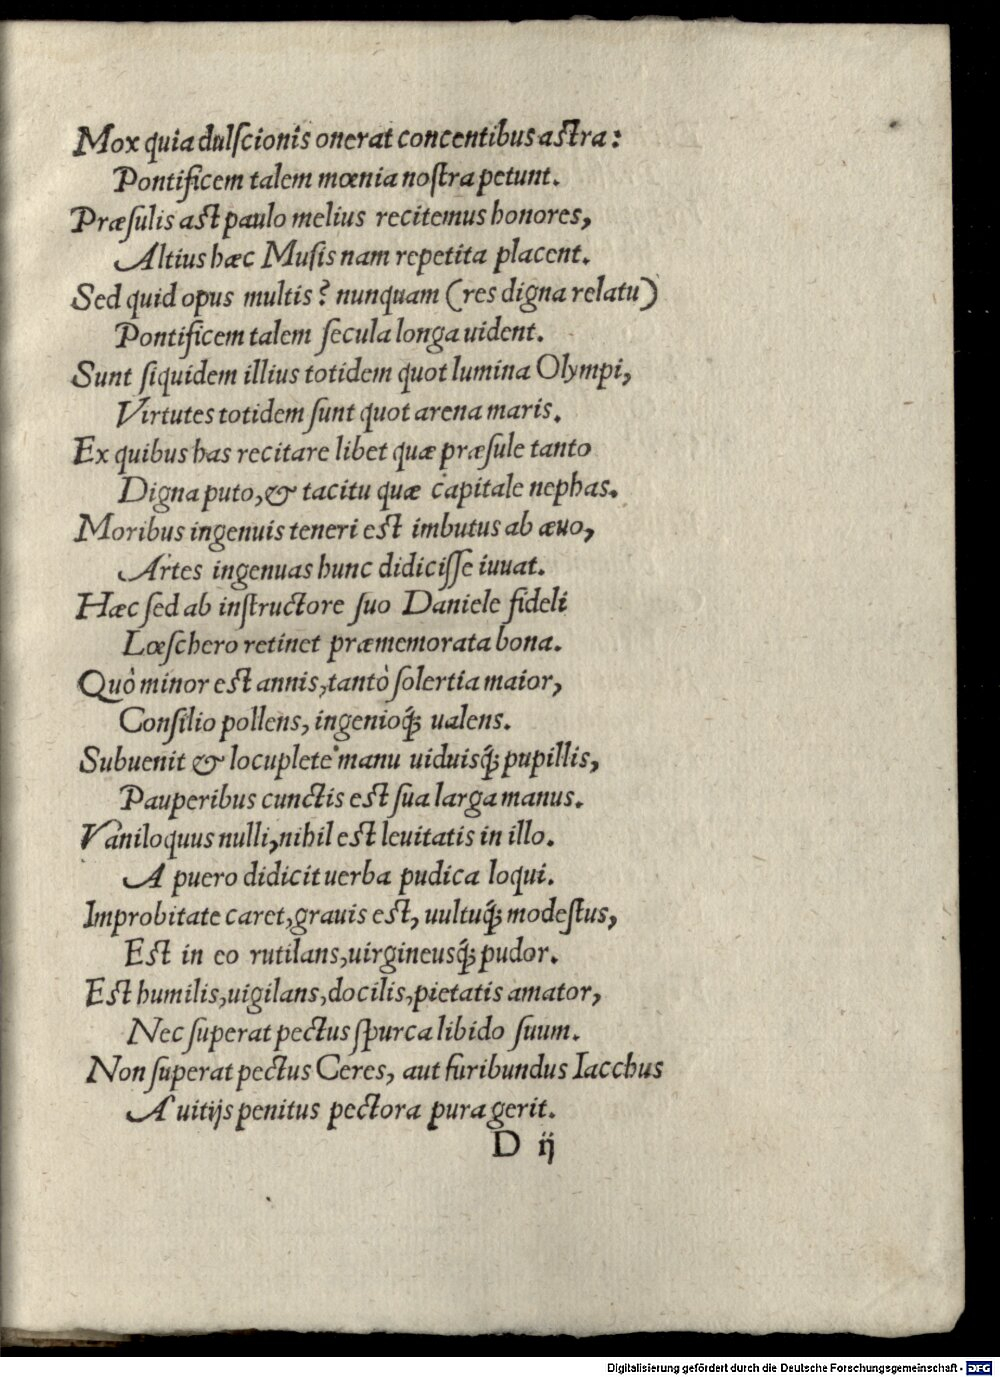 Mox quia dulſcionis onerat concentibus astra:
Pontificem talem mœnia noſtra petunt.
Præſulis ast paulo melius recitemus honores,
Altius hæc Muſis nam repetita placent.
Sed quid opus multis? nunquam (res digna relatu)
Pontificem talem ſecula longa uident.
Sunt ſiquidem illius totidem quot lumina Olympi,
Virtutes totidem ſunt quot arena maris.
Ex quibus has recitare libet quæ præſule tanto
Digna puto, & tacitu quæ capitale nephas.
Moribus ingenuis teneri est imbutus ab æuo,
Artes ingenuas hunc didiciſſe iuuat.
Hæc ſed ab inſtructore ſuo Daniele fideli
Lœſchero retinet præmemorata bona.
Quò minor est annis, tantò ſolertia maior,
Conſilio pollens, ingenioq́; ualens.
Subuenit & locuplete manu uiduisq́; pupillis,
Pauperibus cunctis est ſua larga manus.
Vaniloquus nulli, nihil est leuitatis in illo.
A puero didicit uerba pudica loqui.
Improbitate caret, grauis est, uultuq́; modeſtus,
Est in eo rutilans, uirgineusq́; pudor.
Est humilis, uigilans, docilis, pietatis amator,
Nec ſuperat pectus ſpurca libido ſuum.
Non ſuperat pectus Ceres, aut furibundus Iacchus
A uitijs penitus pectora pura gerit.
D ij
Digitalisierung gefördert durch die Deutsche Forschungsgemeinschaft - DFG